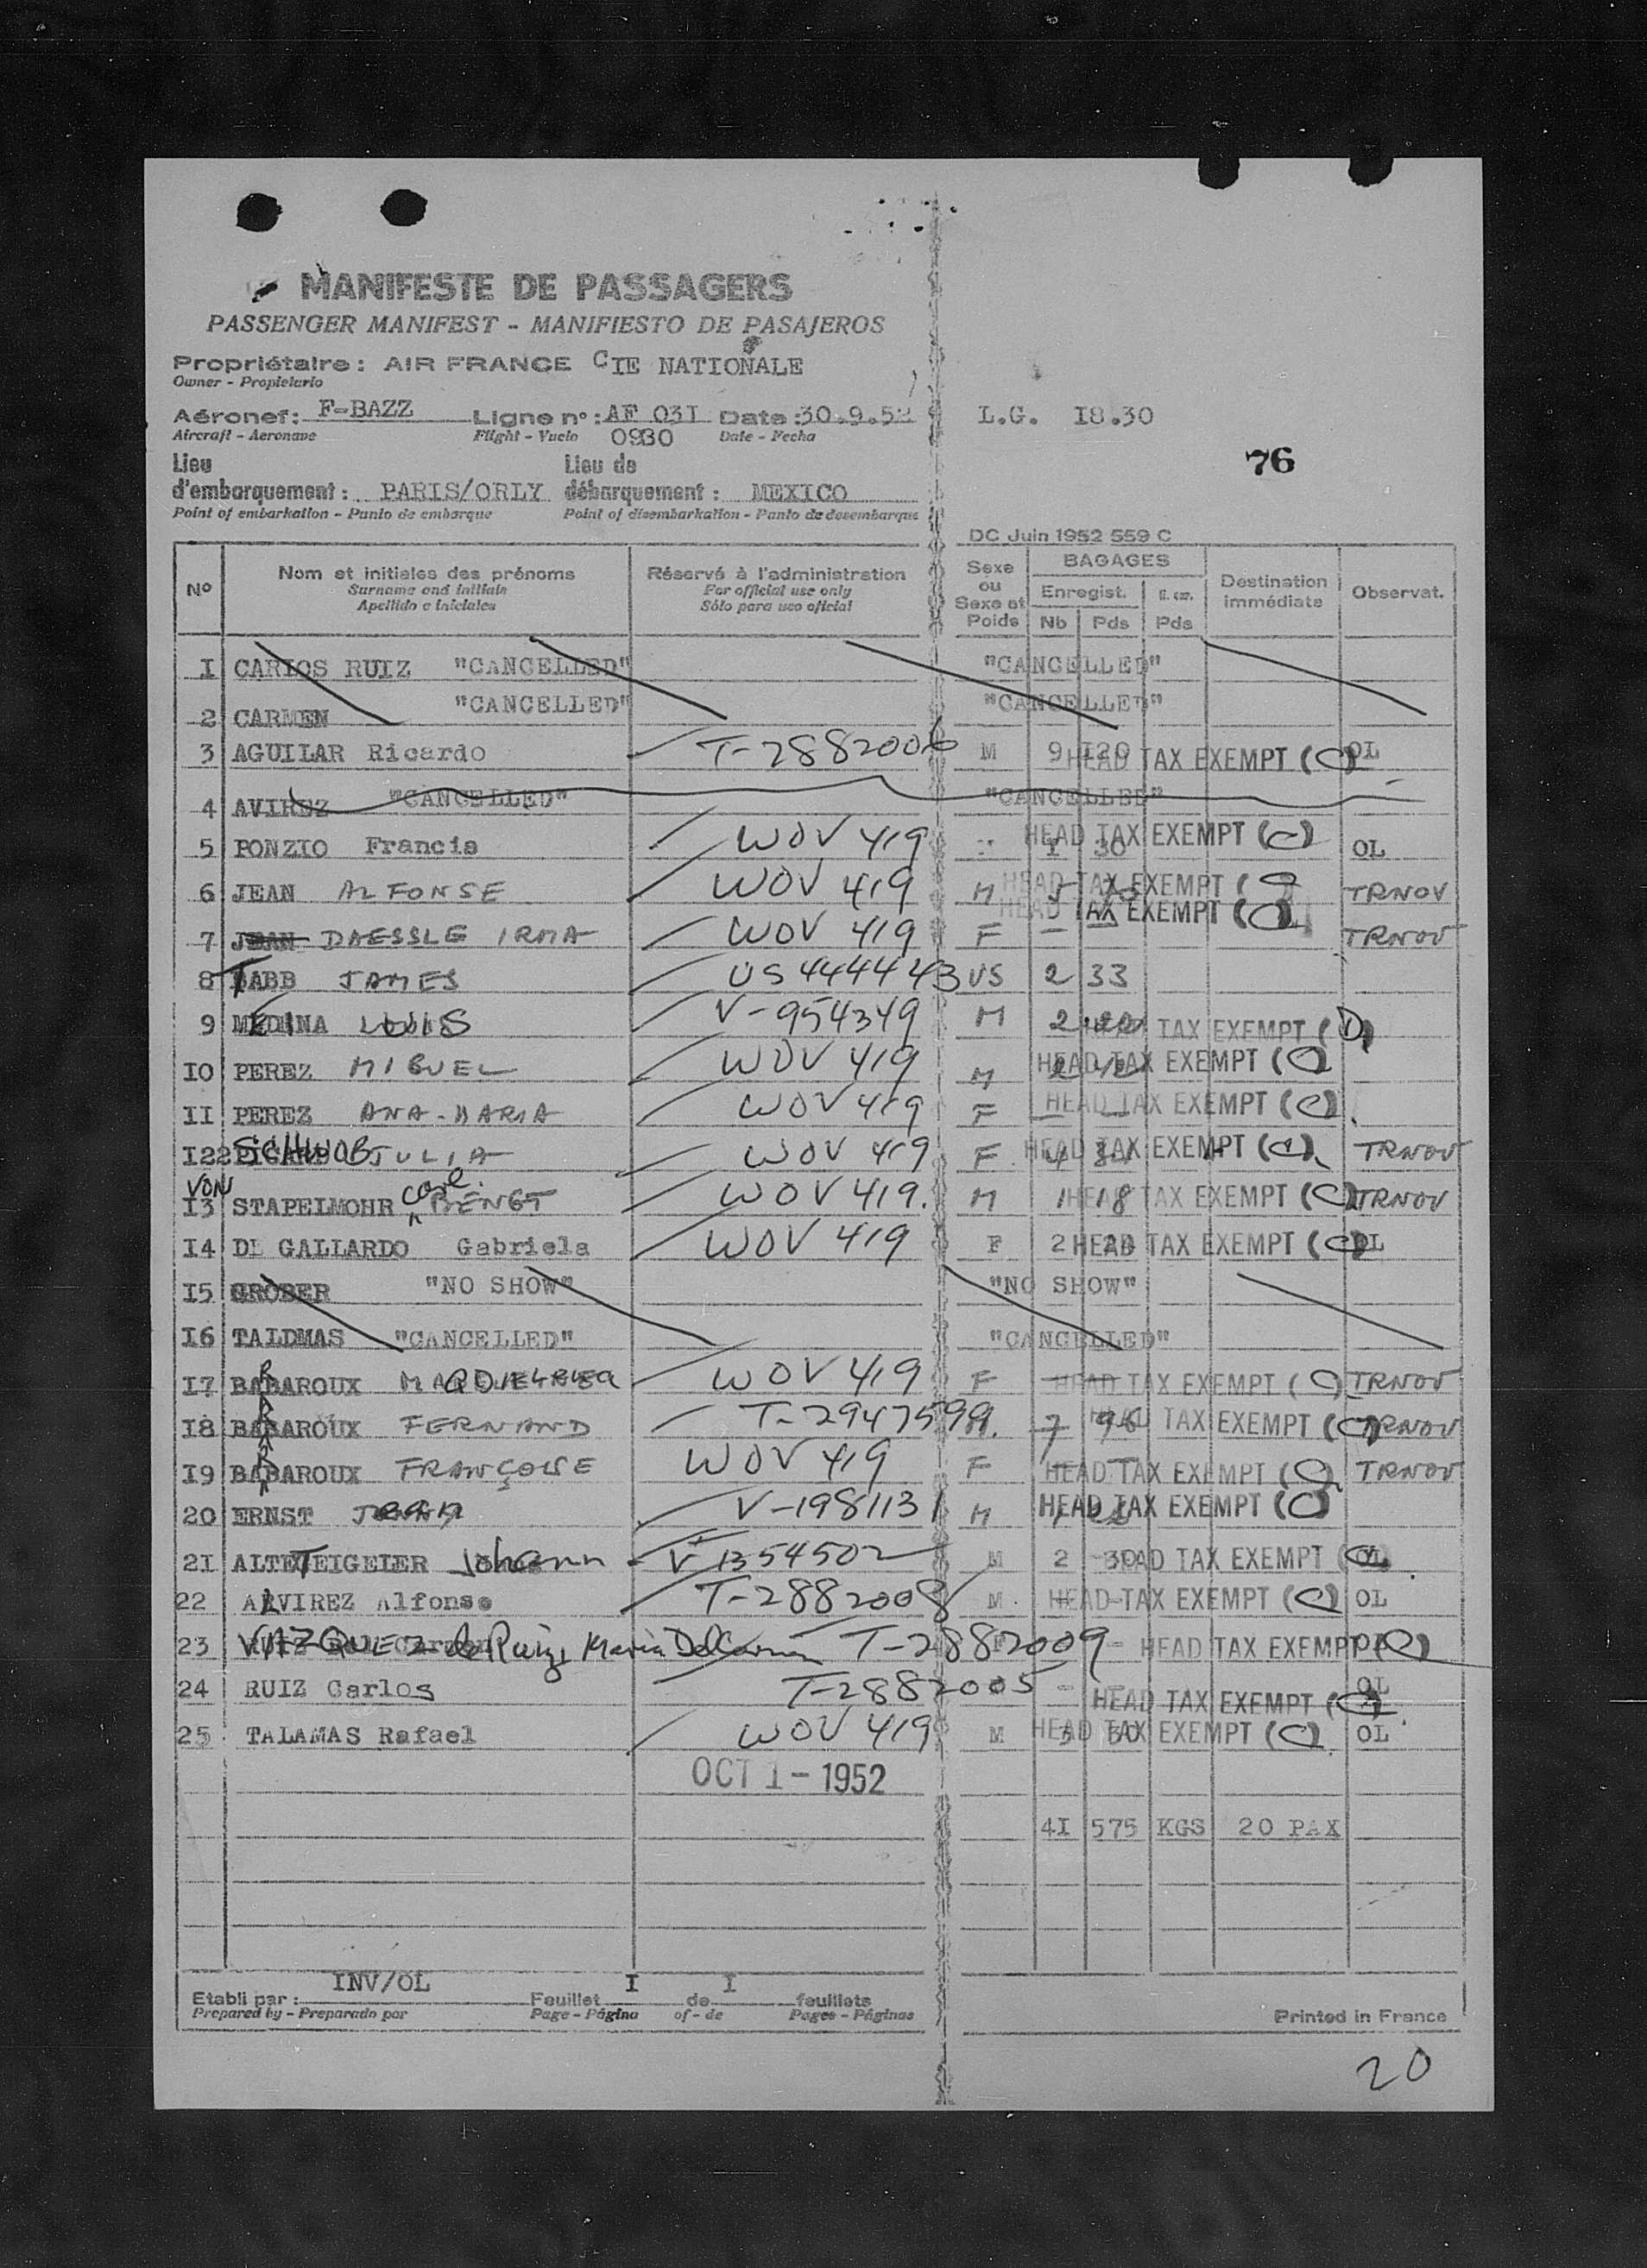 MANIFESTE DE PASSAGERS
PASSENGER MANIFEST - MANIFIESTO DE PASAJEROS
Propriétaire : AIR FRANCE CIE NATIONALE
Owner - Propietario
Aéronef : F-BAZZ Ligne n° : AF 03I Date : 30.9.52 L.G. I8.30
Aircraft - Aeronave Flight - Vuelo 0930 Date - Fecha
76
Lieu Lieu de
d'embarquement : PARIS/ORLY débarquement : MEXICO
Point of embarkation - Punto de embarque Point of disembarkation - Punto de desembarque
DC Juin 1952 559 C
N° Nom et initiales des prénoms Réservé à l'administration Sexe ou Sexe et Poids BAGAGES Destination immédiate Observat.
Surname and initials For official use only Enregist.
Apellido e iniciales Sólo para uso oficial Nb Pds Pds
I CARLOS RUIZ "CANCELLED" "CANCELLED"
2 CARMEN "CANCELLED" "CANCELLED"
3 AGUILAR Ricardo T-2882006 M 9 I20 HEAD TAX EXEMPT (C) OL
4 AVIREZ "CANCELLED" "CANCELLED"
5 PONZIO Francis WOV 419 I 30 HEAD TAX EXEMPT (C) OL
6 JEAN ALFONSE WOV 419 M 5 HEAD TAX EXEMPT ( TRNOV
7 JEAN DAESSLE IRMA WOV 419 F — — HEAD TAX EXEMPT (C) TRNOV
8 TABB JAMES US 444443 US 2 33
9 MEDINA LUIS V-954349 M 2 20 HEAD TAX EXEMPT (D)
IO PEREZ MIGUEL WOV 419 M 2 HEAD TAX EXEMPT (C)
II PEREZ ANA-MARIA WOV 419 F — — HEAD TAX EXEMPT (C)
I2 SCHWOB JULIA WOV 419 F 4 HEAD TAX EXEMPT (C) TRNOV
I3 VON STAPELMOHR BENGT WOV 419. M 1 18 HEAD TAX EXEMPT (C) TRNOV
I4 DE GALLARDO Gabriela WOV 419 F 2 HEAD TAX EXEMPT (C) OL
I5 GROBER "NO SHOW" "NO SHOW"
I6 TALDMAS "CANCELLED" "CANCELLED"
I7 BARBAROUX WOV 419 F HEAD TAX EXEMPT (C) TRNOV
I8 BARBAROUX FERNAND T-2947599 M. 7 96 HEAD TAX EXEMPT (C) TRNOV
I9 BARBAROUX FRANÇOISE WOV 419 F HEAD TAX EXEMPT (C) TRNOV
20 ERNST V-1981131 M HEAD TAX EXEMPT (C)
2I Johann V-1354502 M 2 30 HEAD TAX EXEMPT OL
22 ALVIREZ Alfonso T-2882008 M HEAD TAX EXEMPT (C) OL
23 VAZQUEZ de Ruiz, Maria Del Carmen T-2882009 - HEAD TAX EXEMPT (C) OL
24 RUIZ Carlos T-2882005 - HEAD TAX EXEMPT (C) OL
25 TALAMAS Rafael WOV 419 M 3 50 HEAD TAX EXEMPT (C) OL
OCT 1 - 1952
4I 575 KGS 20 PAX
INV/OL I I
Etabli par : Feuillet de feuillets
Prepared by - Preparado por Page - Página of - de Pages - Páginas Printed in France
20